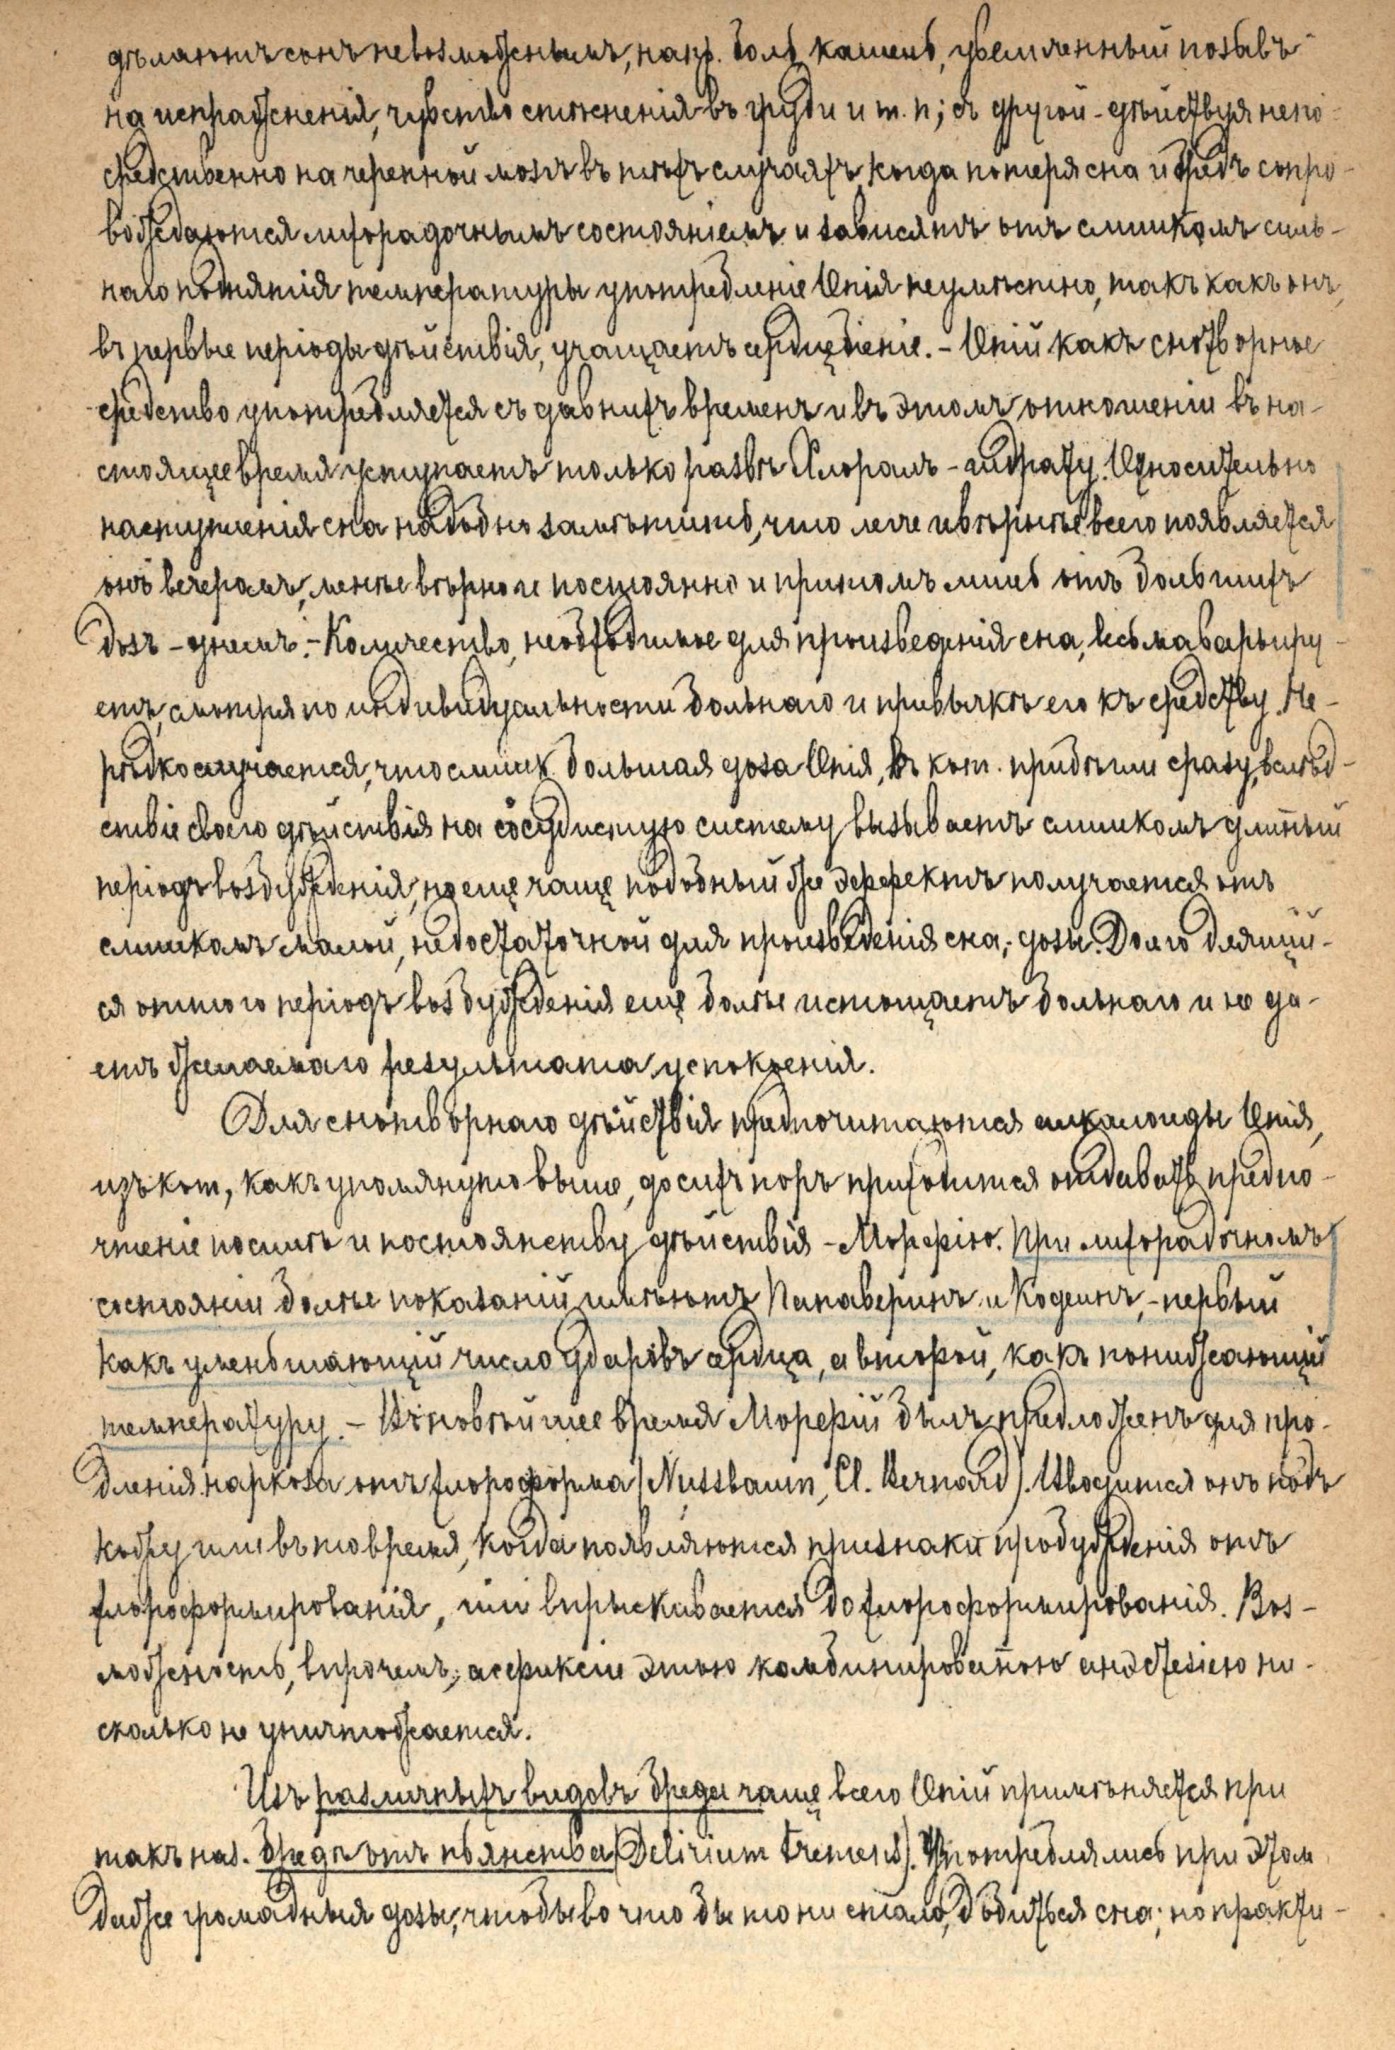 дѣлаютъ сонъ невозможнымъ, напр. боль, кашель, увеличенный позывъ
на испражненія, чувство стѣсненія въ груди и т. п.; съ другой - дѣйствуя непо-
средственно на черепной мозгъ въ тѣхъ случаяхъ, когда потеря сна и бредъ сопро-
вождаются лихорадочнымъ состояніемъ и зависятъ отъ слишкомъ силь-
наго поднятія температуры употребленіе Опія неумѣстно, такъ какъ онъ,
въ первые періоды дѣйствія, учащаетъ сердцебіеніе. - Опій какъ снотворное
средство употребляется съ давнихъ временъ и въ этомъ отношеніи въ на-
стоящее время уступаетъ только развѣ Хлоралъ-гидрату. Относительно
наступленія сна надобно замѣтить, что легче и вѣрнѣе всего появляется
онъ вечеромъ, менѣе вѣрно и постоянно и притомъ лишь отъ большихъ
дозъ - днемъ. - Количество, необходимое для произведенія сна, весьма варьиру-
етъ, смотря по индивидуальности больнаго и привычкѣ его къ средству. Не-
рѣдко случается, что слишк. большая доза Опія, къ кот. прибѣгли сразу, вслѣд-
ствіе своего дѣйствія на сосудистую систему вызываетъ слишкомъ длинный
періодъ возбужденія, но еще чаще подобный же эффектъ получается отъ
слишкомъ малой, недостаточной для произведенія сна, дозы. Долго длящій-
ся отъ того періодъ возбужденія еще болѣе истощаетъ больнаго и не да-
етъ желаемаго результата успокоенія.
Для снотворнаго дѣйствія предпочитаются алкалоиды Опія,
изъ кот., какъ упомянуто выше, до сихъ поръ приходится отдавать предпо-
чтеніе по силѣ и постоянству дѣйствія - Морфію. При лихорадочномъ
состояніи болѣе показаній имѣютъ Папаверинъ и Кодеинъ, - первый
какъ уменьшающій число ударовъ сердца, а второй, какъ понижающій
температуру. - Въ новѣйшее время Морфій былъ предложенъ для про-
дленія наркоза отъ хлороформа (Nussbaum, Cl. Bernard). Вводится онъ подъ
кожу или въ то время, когда появляются признаки пробужденія отъ
хлороформированія, или впрыскивается до хлороформированія. Воз-
можность, впрочемъ, асфиксіи этою комбинированною анэстезіею ни-
сколько не уничтожается.
Изъ различныхъ видовъ бреда чаще всего Опій примѣняется при
такъ наз. бредѣ отъ пьянства (Delirium tremens). Употреблялись при этом
даже громадныя дозы, чтобы во что бы то ни стало, добиться сна; но практи-